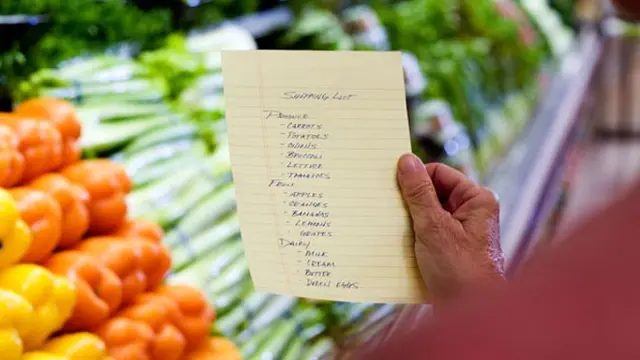 Shopping List
Produce
- Carrots
- Potatoes
- Onions
- Broccoli
- Lettuce
- Tomatoes
Fruit
- Apples
- Oranges
- Bananas
- Lemons
- Grapes
Dairy
- Milk
- Cream
- Butter
- Dozen Eggs